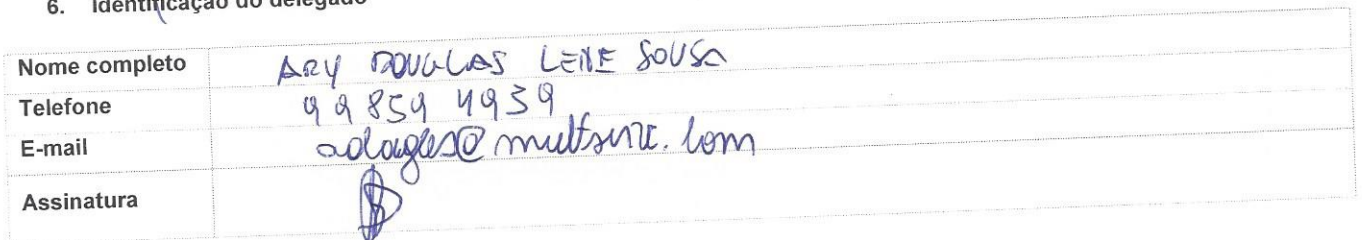 6. Identificação do delegado
Nome completo ARY DOUGLAS LEITE SOUSA
Telefone 99859 4939
E-mail
Assinatura